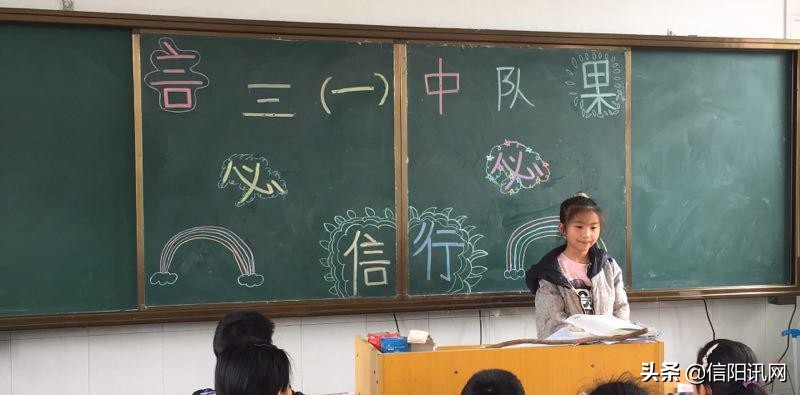 言 三(一)中队 果
必 必
信 行
头条@信阳讯网